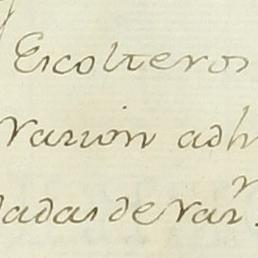 Escolteros
varion adh
dadas de Var.^n